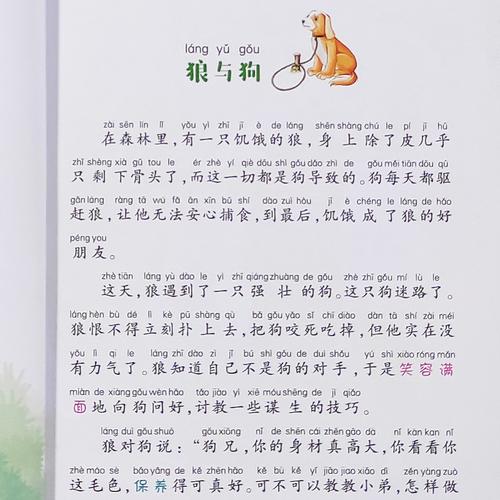 láng yǔ gǒu
狼与狗
zài sēn lín lǐ yǒu yì zhī jī è de láng shēn shàng chú le pí jī hū
在森林里，有一只饥饿的狼，身上除了皮几乎
zhǐ shèng xià gǔ tou le ér zhè yí qiè dōu shì gǒu dǎo zhì de gǒu měi tiān dōu qū
只剩下骨头了，而这一切都是狗导致的。狗每天都驱
gǎn láng ràng tā wú fǎ ān xīn bǔ shí dào zuì hòu jī è chéng le láng de hǎo
赶狼，让他无法安心捕食，到最后，饥饿成了狼的好
péng you
朋友。
zhè tiān láng yù dào le yì zhī qiáng zhuàng de gǒu zhè zhī gǒu mí lù le
这天，狼遇到了一只强壮的狗。这只狗迷路了。
láng hèn bù dé lì kè pū shàng qù bǎ gǒu yǎo sǐ chī diào dàn tā shí zài méi
狼恨不得立刻扑上去，把狗咬死吃掉，但他实在没
yǒu lì qi le láng zhī dào zì jǐ bú shì gǒu de duì shǒu yú shì xiào róng mǎn
有力气了。狼知道自己不是狗的对手，于是笑容满
miàn de xiàng gǒu wèn hǎo tǎo jiào yì xiē móu shēng de jì qiǎo
面地向狗问好，讨教一些谋生的技巧。
láng duì gǒu shuō gǒu xiōng nǐ de shēn cái zhēn gāo dà nǐ kàn kan nǐ
狼对狗说：“狗兄，你的身材真高大，你看看你
zhè máo sè bǎo yǎng de kě zhēn hǎo kě bù kě yǐ jiāo jiao xiǎo dì zěn yàng zuò
这毛色，保养得可真好。可不可以教教小弟，怎样做